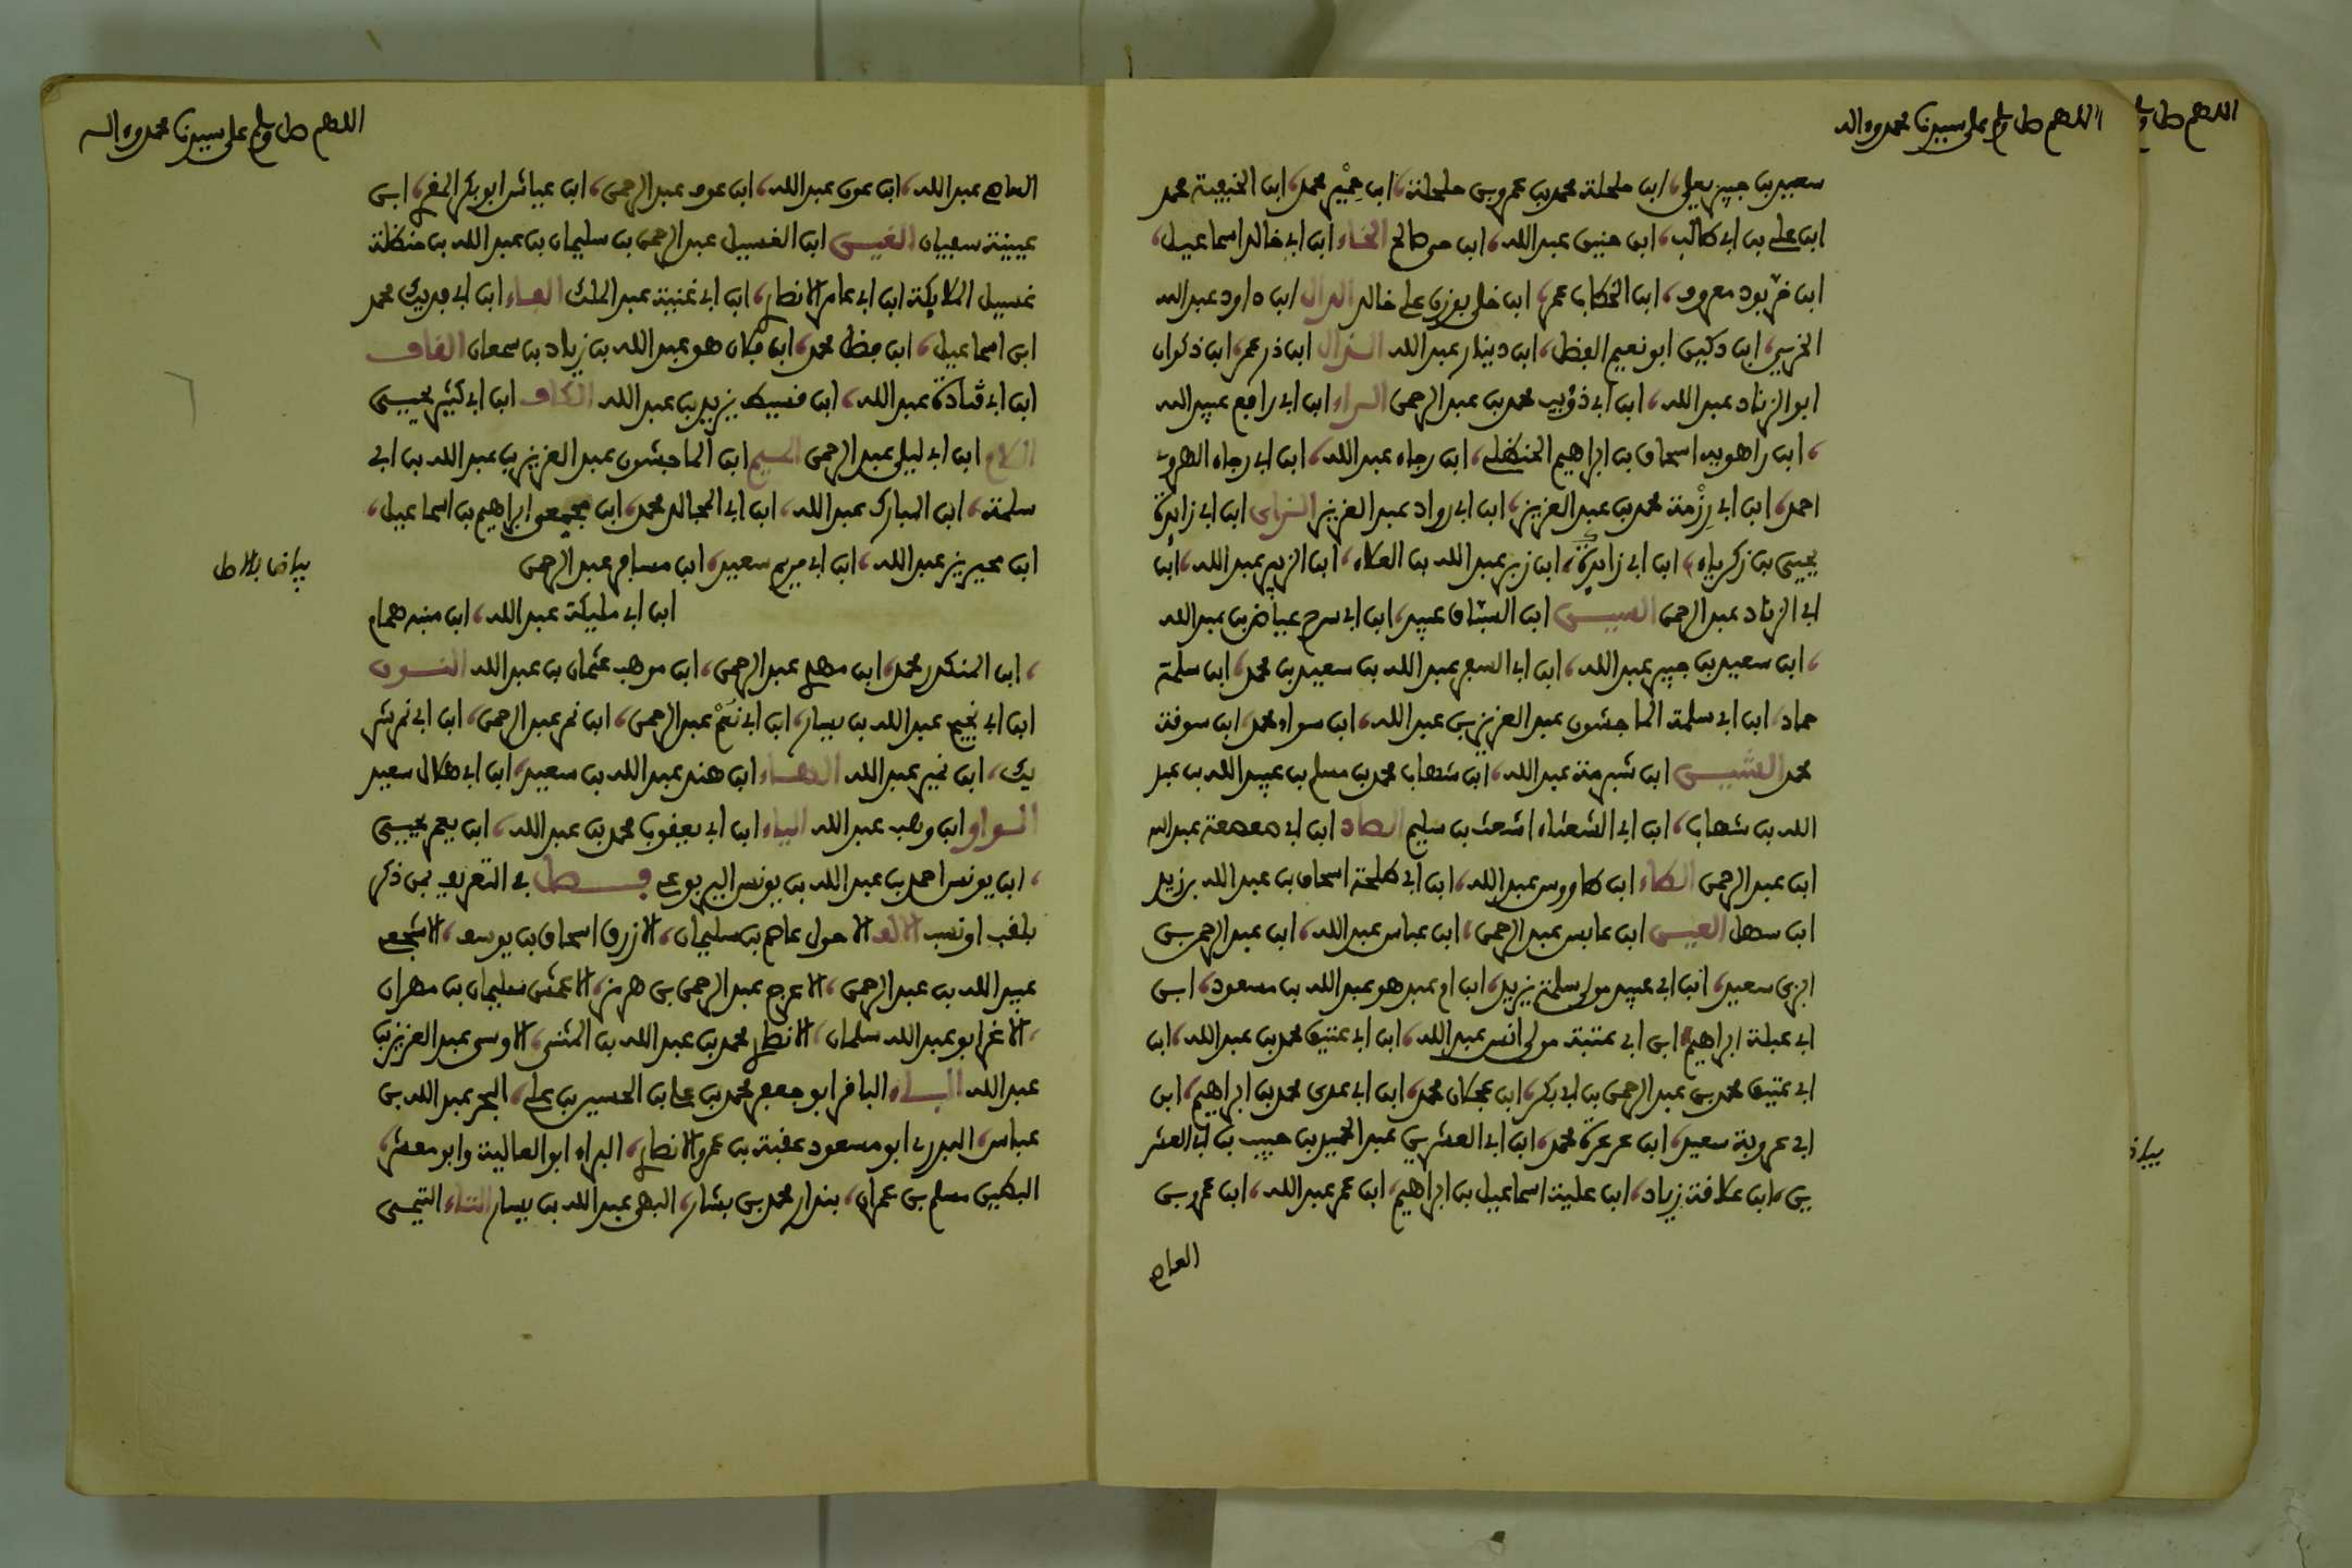 اللهم صل وسلم على سيدنا محمد وءاله
سعيد بن جبير يعلى، ابن حلحلة محمد بن عمرو بن حلحلة، ابن حمير محمد، ابن الحنفية محمد
ابن علي بن ابي طالب، ابن حنين عبد الله، ابن حي صالح الخاء ابن ابي خالد اسماعيل،
ابن خربوذ معروف، ابن الخطاب عمر، ابن خلي بوزن علي خالد الدال ابن داود عبد الله
الخريبي، ابن دكين ابو نعيم الفضل، ابن دينار عبد الله الذال ابن ذر عمر، ابن ذكوان
ابو الزناد عبد الله، ابن ابي ذؤيب محمد بن عبد الرحمن الراء ابن ابي رافع عبيد الله
، ابن راهويه اسحاق بن ابراهيم الحنظلي، ابن رجاء عبد الله، ابن ابي رجاء الهروي
احمد، ابن ابي رزمة محمد بن عبد العزيز، ابن ابي رواد عبد العزيز الزاى ابن ابي زايدة
يحيى بن زكرياء، ابن ابي زايدة، ابن زبر عبد الله بن العلاء، ابن الزبير عبد الله، ابن
ابي الزناد عبد الرحمن السيـن ابن السباق عبيد، ابن ابي سرح عياض بن عبد الله
، ابن سعيد بن جبير عبد الله، ابن ابي السفر عبد الله بن سعيد بن محمد، ابن سلمة
حماد، ابن ابي سلمة الماجشون عبد العزيز بن عبد الله، ابن سواء محمد، ابن سوقة
محمد الشيـن ابن شبرمة عبد الله، ابن شهاب محمد بن مسلم بن عبيد الله بن عبد
الله بن شهاب، ابن ابي الشعثاء اشعث بن سليم الصاد ابن ابي صعصعة عبد الله
ابن عبد الرحمن الطاء ابن طاووس عبد الله، ابن ابي طلحة اسحاق بن عبد الله بن زيد
ابن سهل العيـن ابن عابس عبد الرحمن، ابن عباس عبد الله، ابن عبد الرحمن بن
ابزى سعيد، ابن ابي عبيد مولى سلمة يزيد، ابن ام عبد هو عبد الله بن مسعود، ابن
ابي عبلة ابراهيم، ابن ابي عتبة مولى انس عبد الله، ابن ابي عتيق محمد بن عبد الله، ابن
ابي عتيق محمد بن عبد الرحمن بن ابي بكر، ابن عجلان محمد، ابن ابي عدي محمد بن ابراهيم، ابن
ابي عروبة سعيد، ابن عرعرة محمد، ابن ابي العشرين عبد الحميد بن حبيب بن ابي العشر
ين، ابن علاقة زياد، ابن علية اسماعيل بن ابراهيم، ابن عمر عبد الله، ابن عمرو بن
العاص
اللهم صل وسلم على سيدنا محمد وءاله
العاص عبد الله، ابن عون عبد الله، ابن عوف عبد الرحمن، ابن عياش ابو بكر المقرئ، ابن
عيينة سفيان الغيـن ابن الغسيل عبد الرحمن بن سليمان بن عبد الله بن حنظلة
غسيل الملايكة ابن ابي عامر الانصاري، ابن ابي غنية عبد الملك الفـاء ابن ابي فديك محمد
ابن اسماعيل، ابن فضل محمد، ابن هو عبد الله بن زياد بن سمعان القاف
ابن ابي قتادة عبد الله، ابن قسيط يزيد بن عبد الله الكاف ابن ابي كثير يحيى
اللام ابن ابي ليلى عبد الرحمن الميم ابن الماجشون عبد العزيز بن عبد الله بن ابي
سلمة، ابن المبارك عبد الله، ابن ابي المجالد محمد، ابن مجمع ابراهيم بن اسماعيل،
ابن محيريز عبد الله، ابن ابي مريم سعيد، ابن مسافر عبد الرحمن
بياض بالاصل
ابن ابي مليكة عبد الله، ابن منبه همام
، ابن المنكدر محمد، ابن مهدي عبد الرحمن، ابن موهب عثمان بن عبد الله النـون
ابن ابي نجيح عبد الله بن يسار، ابن ابي نعم عبد الرحمن، ابن نمر عبد الرحمن، ابن ابي نمر شر
يك، ابن نمير عبد الله الهـاء ابن هند عبد الله بن سعيد، ابن ابي هلال سعيد
الـواو ابن وهب عبد الله الياء ابن ابي يعقوب محمد بن عبد الله، ابن يعمر يحيى
، ابن يونس احمد بن عبد الله بن يونس اليربوعي فــصل في التعريف بمن ذكر
بلقب او نسب الالف الاحول عاصم بن سليمان، الازرق اسحاق بن يوسف، الاشجعي
عبيد الله بن عبد الرحمن، الاعرج عبد الرحمن بن هرمز، الاعمش سليمان بن مهران
، الاغر ابو عبد الله سلمان، الانصاري محمد بن عبد الله بن المثنى، الاوسي عبد العزيز بن
عبد الله البـاء الباقر ابو جعفر محمد بن علي بن الحسين بن علي، البحر عبد الله بن
عباس، البدري ابو مسعود عقبة بن عمرو الانصاري، البراء ابو العالية وابو معشر،
البطين مسلم بن عمران، بندار محمد بن بشار، البهي عبد الله بن يسار التاء التيمي